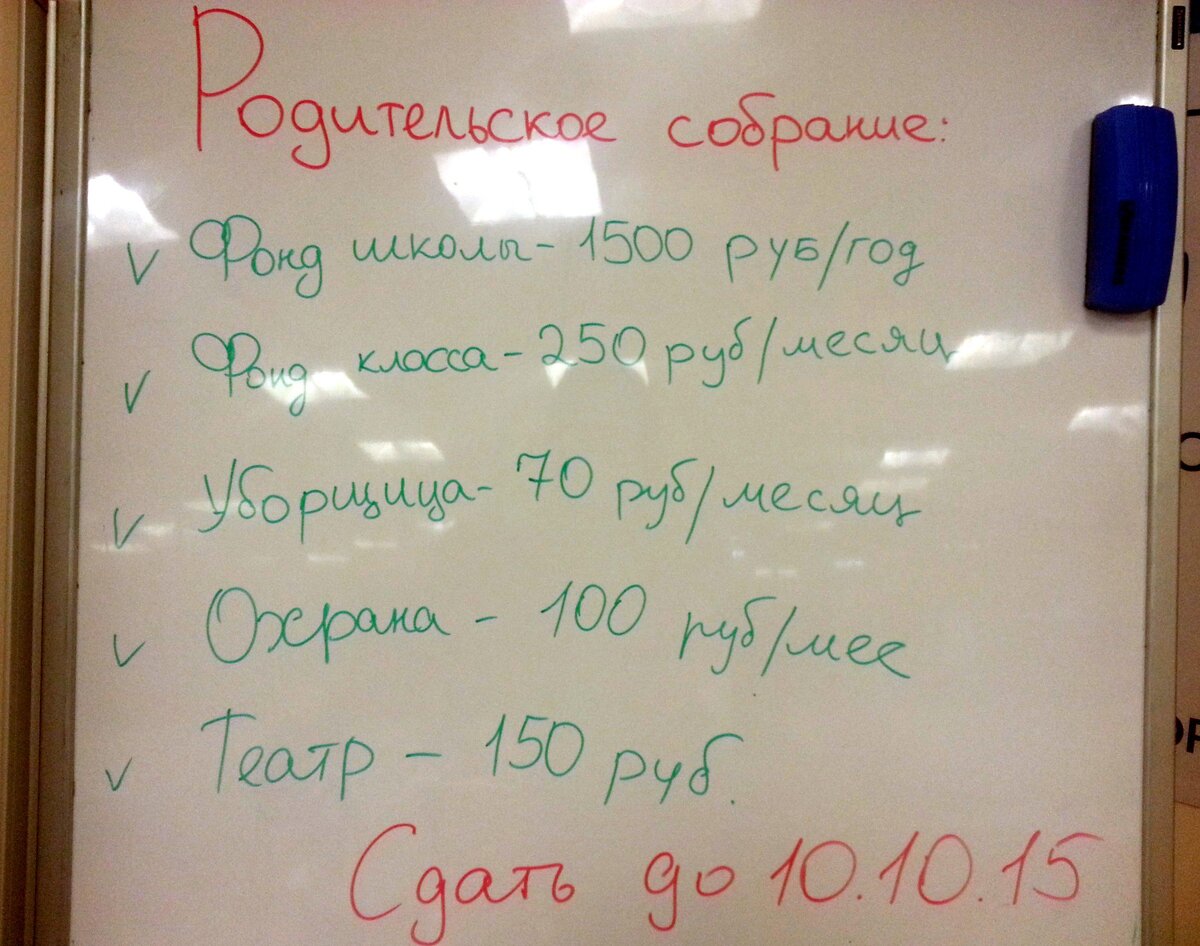 Родительское собрание:
✓ Фонд школы - 1500 руб/год
✓ Фонд класса - 250 руб/месяц
✓ Уборщица - 70 руб/месяц
✓ Охрана - 100 руб/мес
✓ Театр - 150 руб.
Сдать до 10.10.15